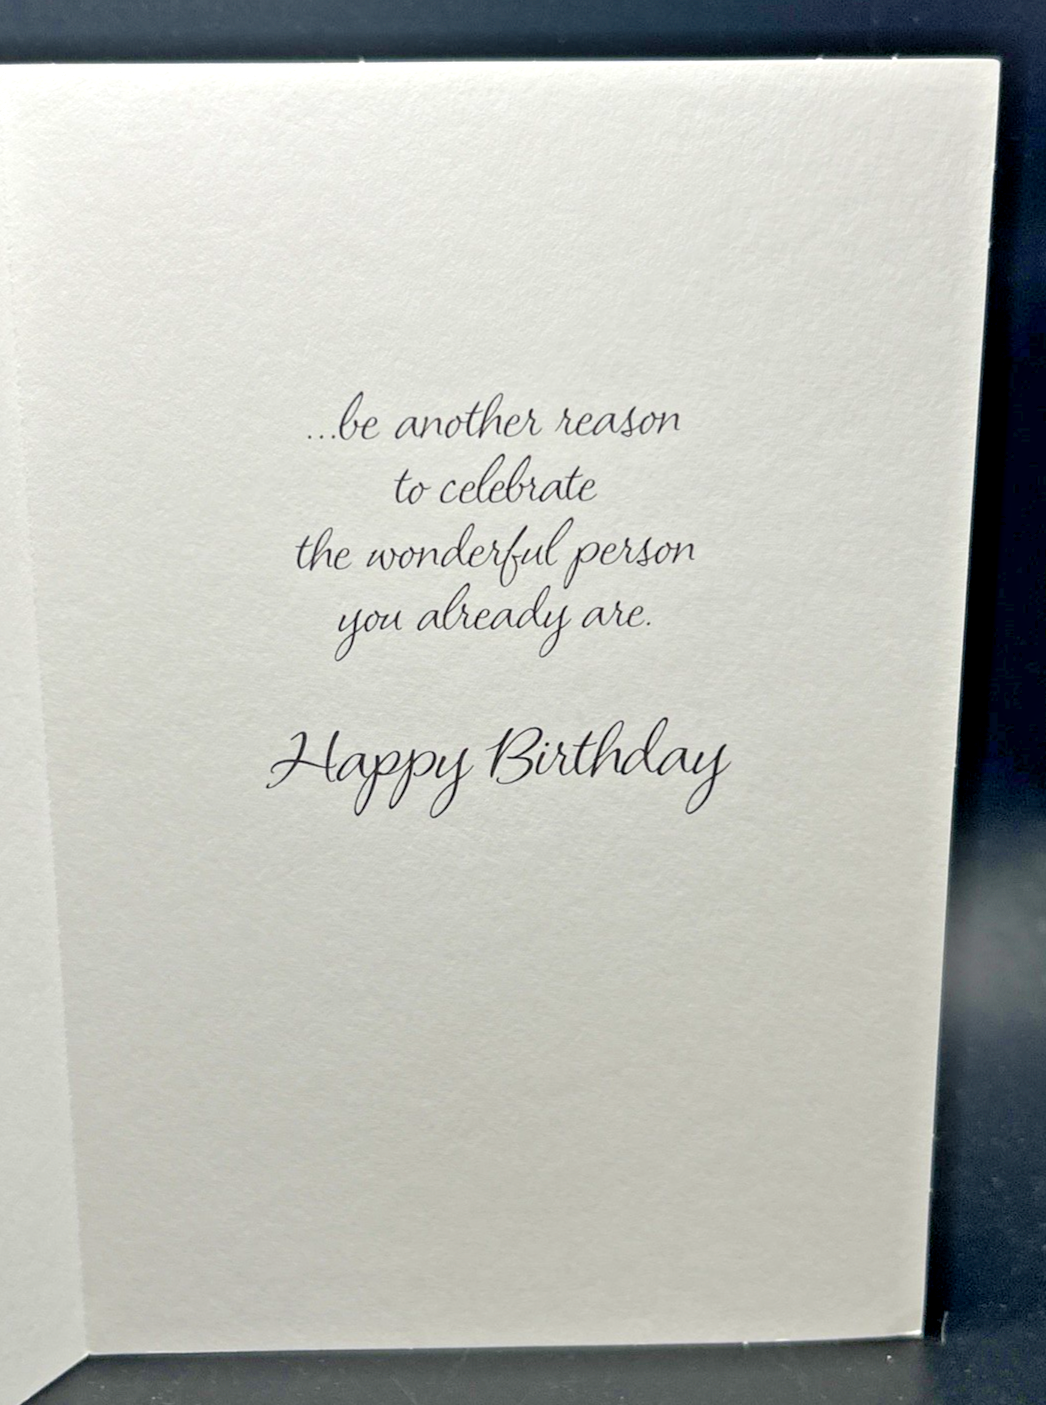 ...be another reason
to celebrate
the wonderful person
you already are.
Happy Birthday